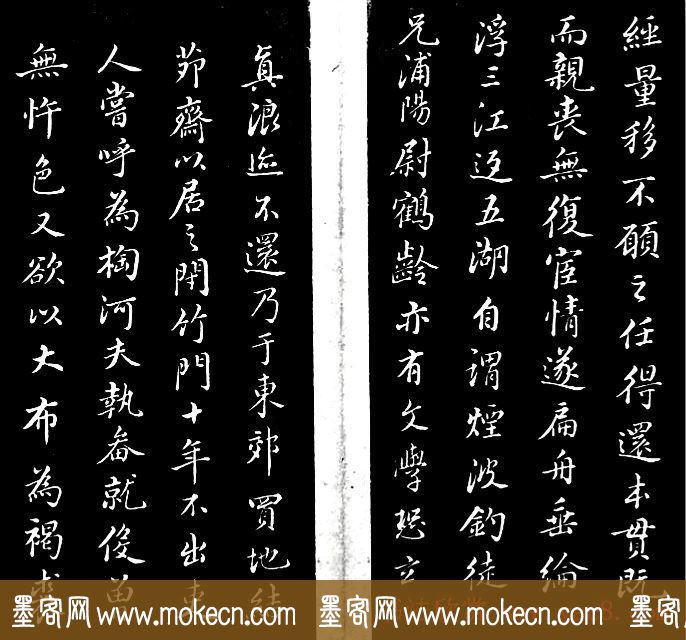 經量移不願之任得還本貫既
而親喪無復宦情遂扁舟垂綸
浮三江泛五湖自謂煙波釣徒
兄浦陽尉鶴齡亦有文學恐玄
真浪跡不還乃于東郊買地結
茆齋以居之閑竹門十年不出吏
人嘗呼為掏河夫執畚就役曾
無忤色又欲以大布為褐裘
墨客网 www.mokecn.com 墨客网 www.mokecn.com 墨客网